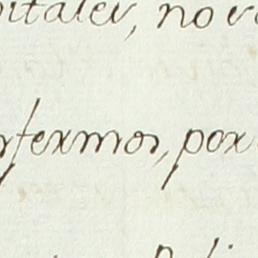 pitales, no va
nfermos, por